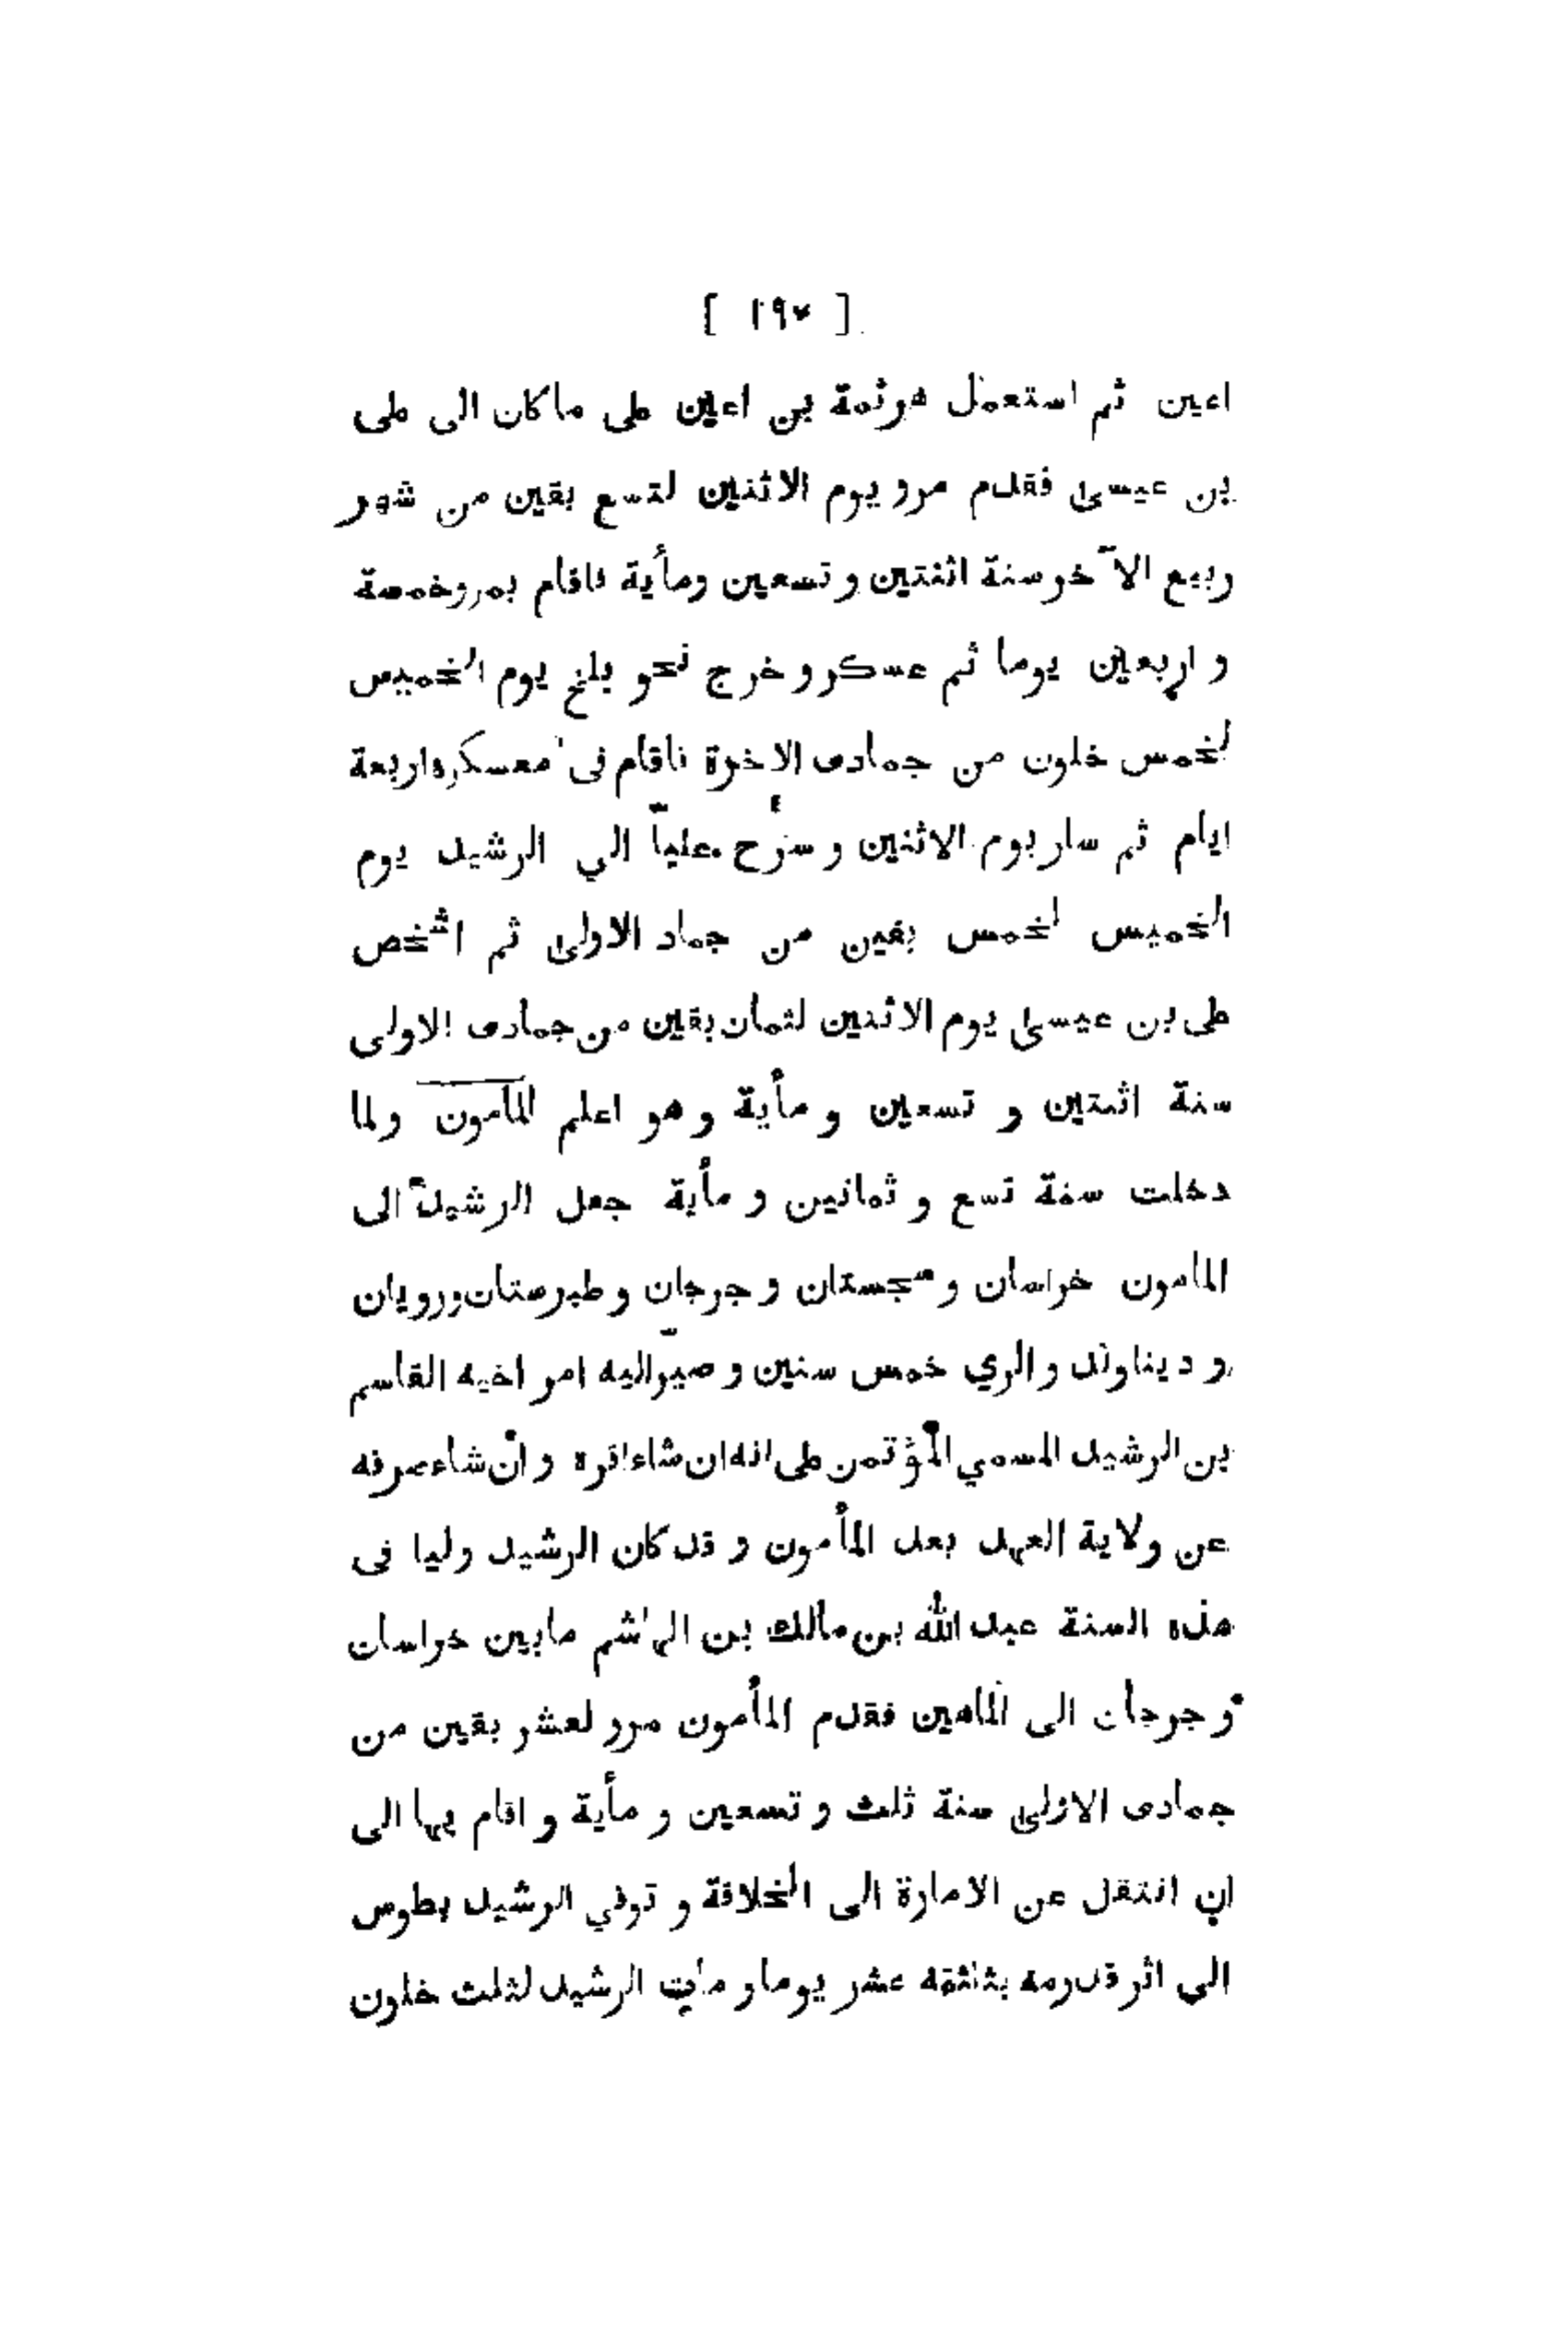 [ ١٩٧ ]
اعين ثم استعمل هرثمة بن اعين على ما كان الى على
بن عيسى فقدم مرو يوم الاثنين لتسع بقين من شهر
ربيع الآخر سنة اثنتين و تسعين ومأية فاقام بمرو خمسة
و اربعين يوما ثم عسكر و خرج نحو بلخ يوم الخميس
لخمس خلون من جمادى الاخرة فاقام فى معسكره اربعة
ايام ثم سار يوم الاثنين و سرّح علياّ الي الرشيد يوم
الخميس لخمس بقين من جماد الاولى ثم اشخص
على بن عيسى يوم الاثنين لثمان بقين من جمادى الاولى
سنة اثنتين و تسعين و مأية و هو اعلم المأمون ولما
دخلت سنة تسع و ثمانين و مأية جعل الرشيد الى
المامون خراسان و سجستان و جرجان و طبرستان و رويان
و ديناوند و الري خمس سنين و صيّر اليه امر اخيه القاسم
بن الرشيد المسمي المؤتمن على انه ان شاء اقره و ان شاء صرفه
عن ولاية العهد بعد المأمون و قد كان الرشيد وليا فى
هذه السنة عبد الله بن مالك بن الهاشم ما بين خراسان
و جرجان الى المامين فقدم المأمون مرو لعشر بقين من
جمادى الاولى سنة ثلث و تسعين و مأية و اقام بها الى
ان انتقل عن الامارة الى الخلافة و توفي الرشيد بطوس
الى اثر قدومه بثلثة عشر يوما و مات الرشيد لثلث خلون